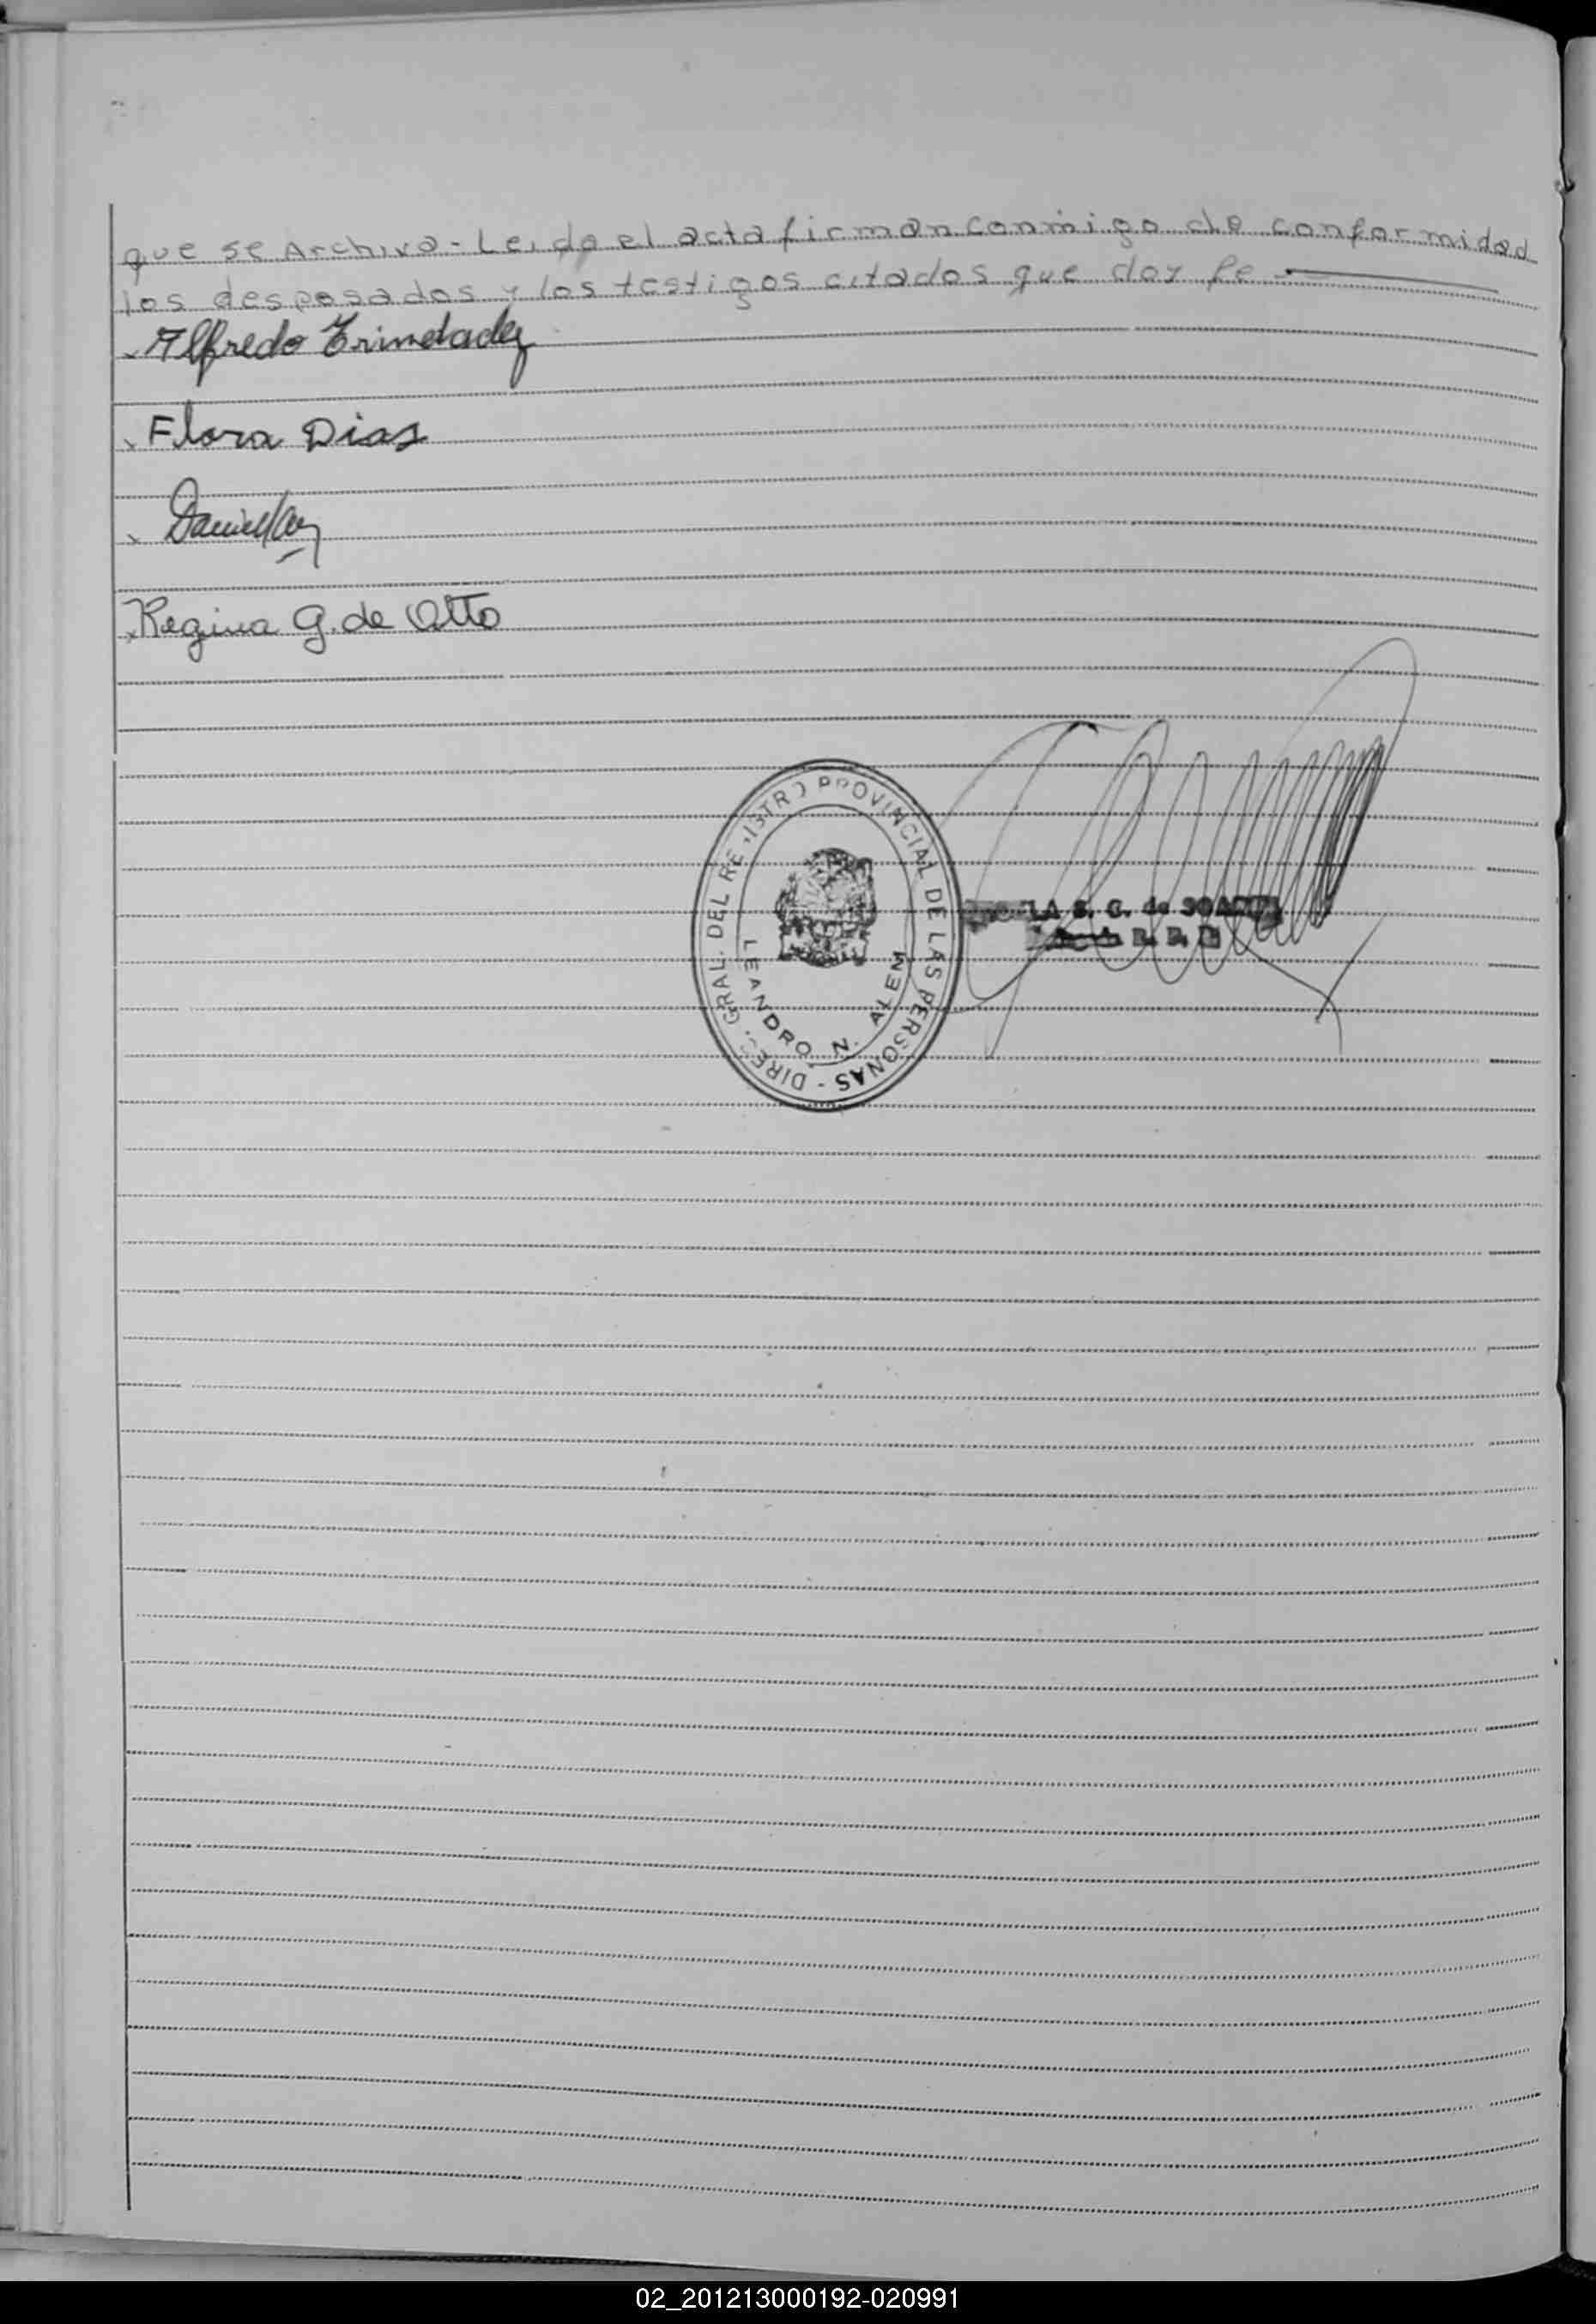 que se Archiva - Leida el acta firman conmigo de conformidad
los desposados y los testigos citados que doy fe
Alfredo Trindadez
Flora Dias
Daniel
Regina G. de Otto
DIREC. GRAL. DEL REGISTRO PROVINCIAL DE LAS PERSONAS -
LEANDRO N. ALEM
S. G. de
02_201213000192-020991